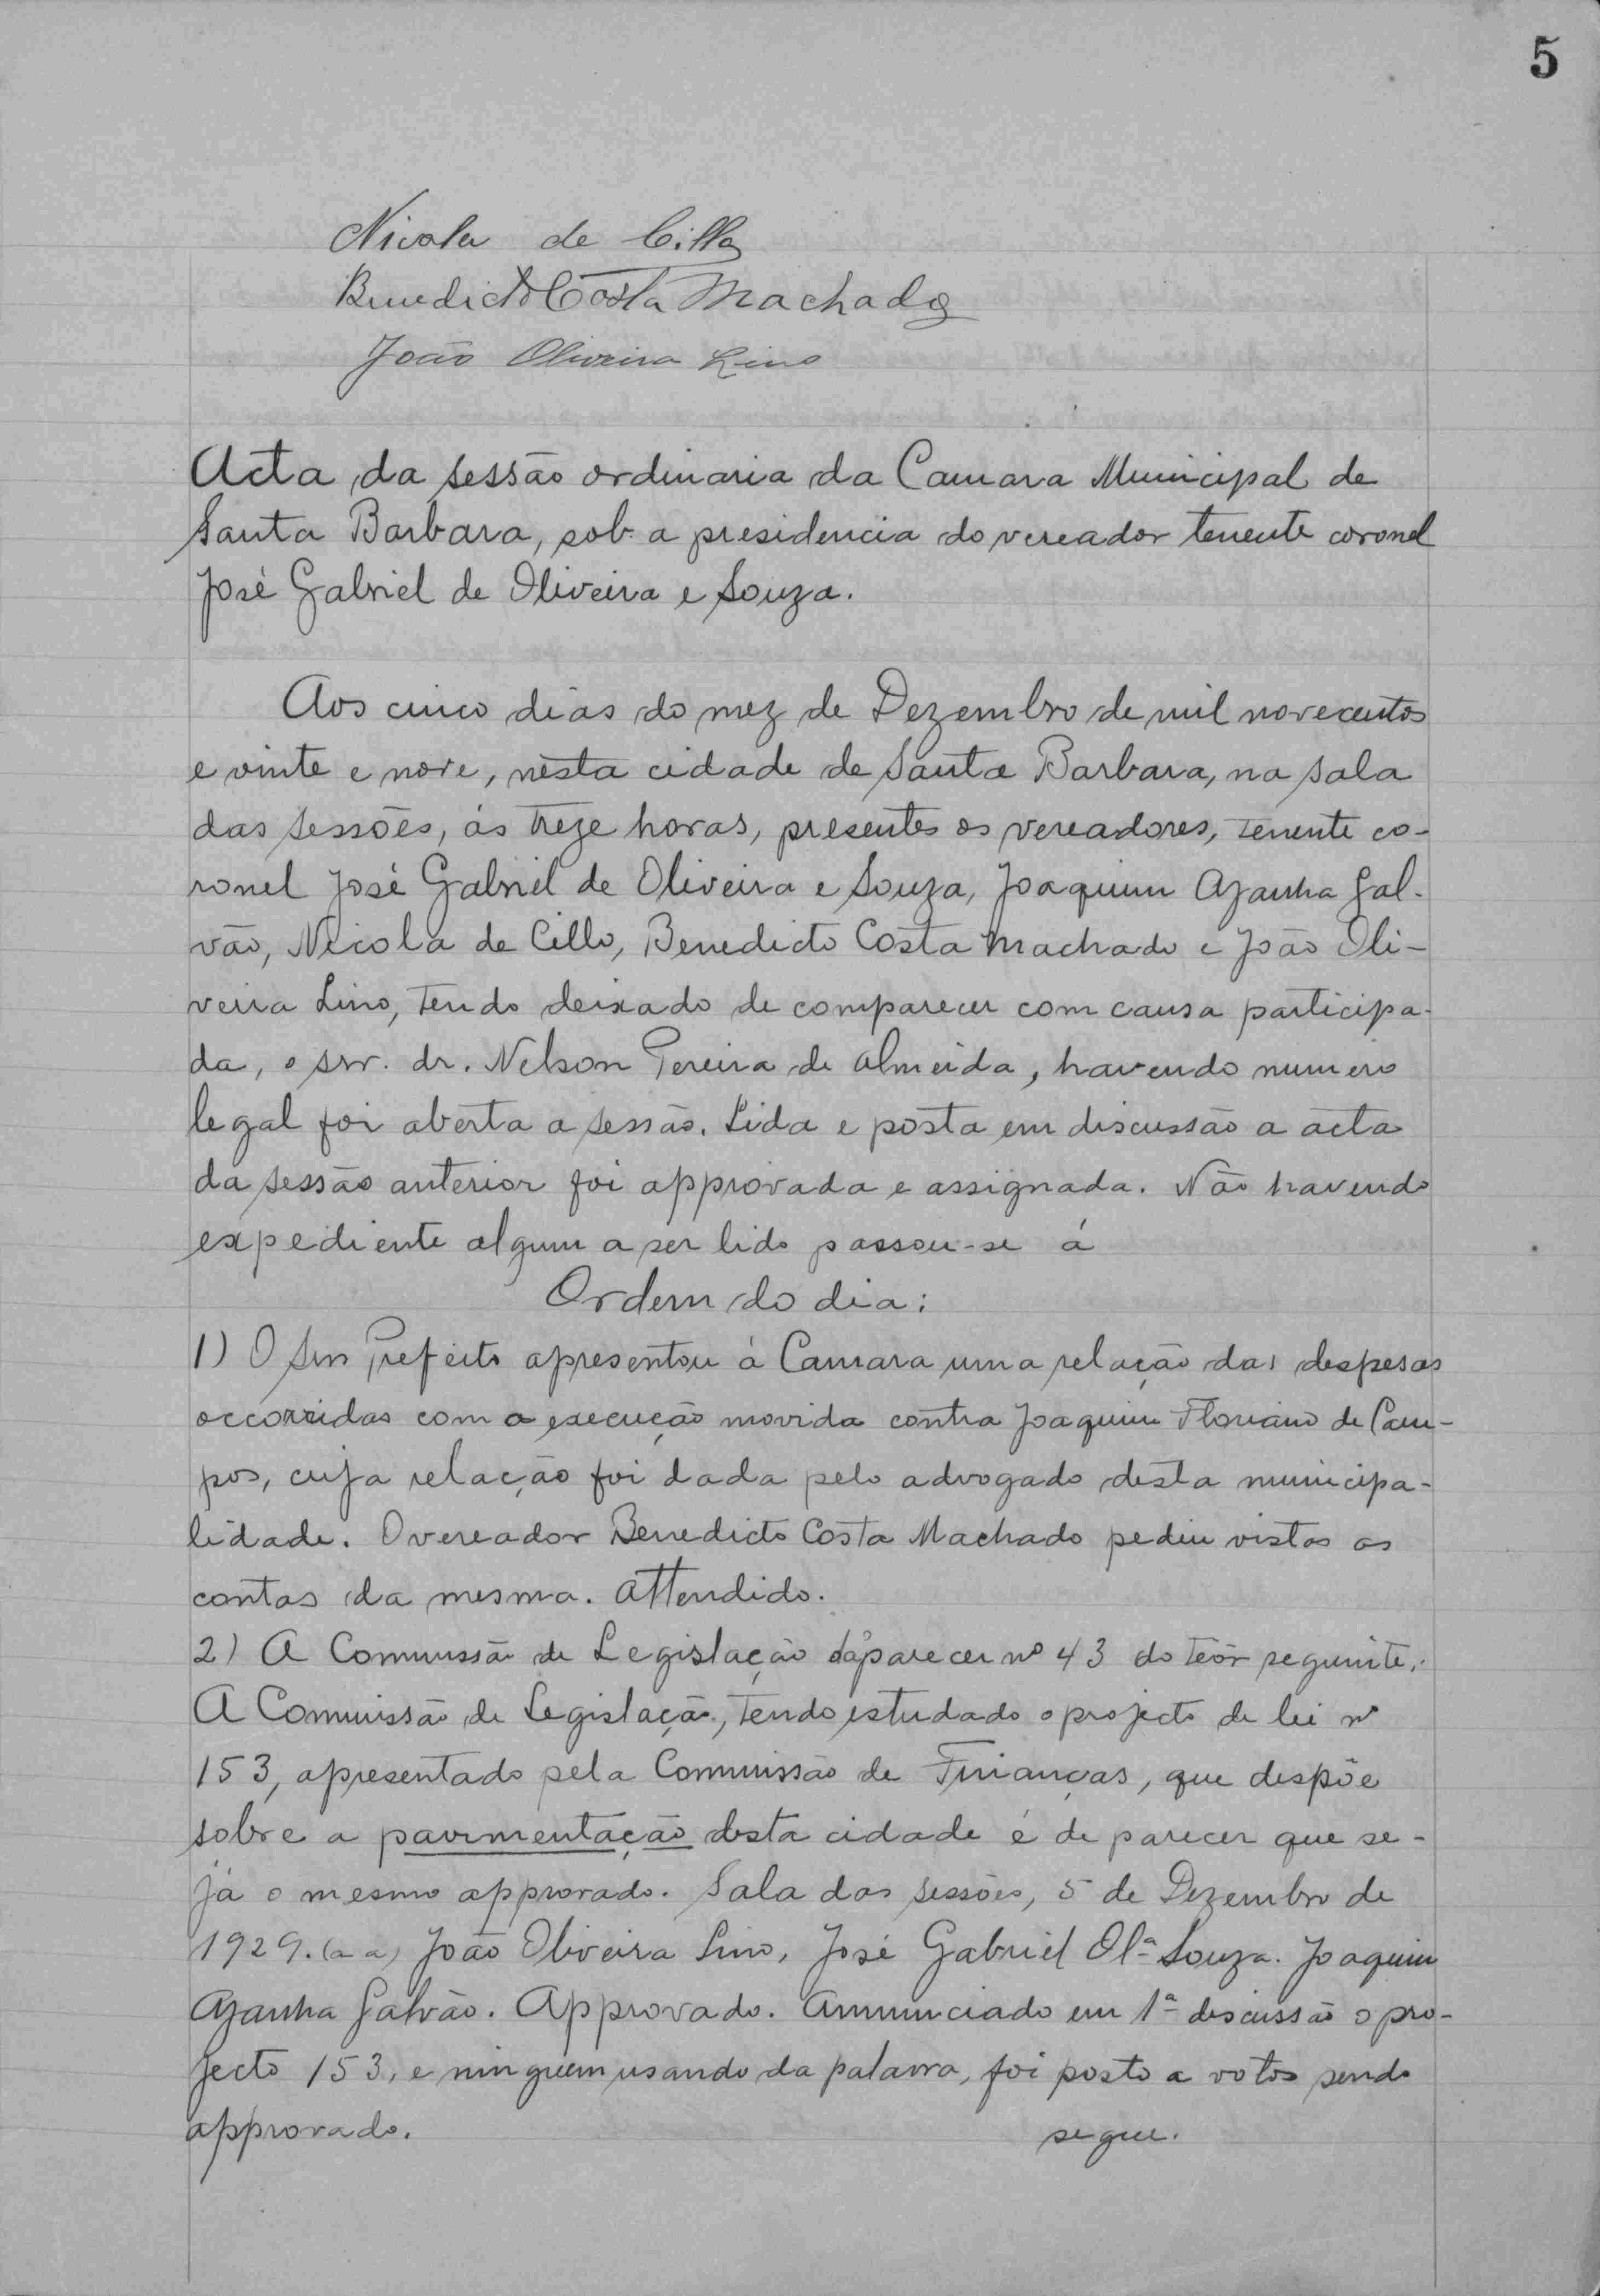 5
Nicola de Cillo
Benedicto Costa Machado
João Oliveira Lino
Acta da sessão ordinaria da Camara Municipal de
Santa Barbara, sob a presidencia do vereador tenente coronel
José Gabriel de Oliveira e Souza.
Aos cinco dias do mez de Dezembro de mil novecentos
e vinte e nove, nesta cidade de Santa Barbara, na sala
das sessões, ás treze horas, presentes os vereadores, tenente co-
ronel José Gabriel de Oliveira e Souza, Joaquim Azanha Gal-
vão, Nicola de Cillo, Benedicto Costa Machado e João Oli-
veira Lino, tendo deixado de comparecer com causa participa-
da, o snr. dr. Nelson Pereira de Almeida, havendo numero
legal foi aberta a sessão. Lida e posta em discussão a acta
da sessão anterior foi approvada e assignada. Não havendo
expediente algum a ser lido passou-se á
Ordem do dia:
1) O snr Prefeito apresentou á Camara uma relação das despesas
occorridas com a execução movida contra Joaquim Floriano de Cam-
pos, cuja relação foi dada pelo advogado desta municipa-
lidade. O vereador Benedicto Costa Machado pediu vistas as
contas da mesma. Attendido.
2) A Commissão de Legislação dá parecer nº 43 do teôr seguinte:
A Commissão de Legislação, tendo estudado o projecto de lei nº
153, apresentado pela Commissão de Finanças, que despõe
sobre a pavimentação desta cidade é de parecer que se-
ja o mesmo approvado. Sala das sessões, 5 de Dezembro de
1929. (a a) João Oliveira Lino, José Gabriel Olª Souza. Joaquim
Azanha Galvão. Approvado. Annunciado em 1ª discussão o pro-
jecto 153, e ninguem usando da palavra, foi posto a votos sendo
approvado. segue.